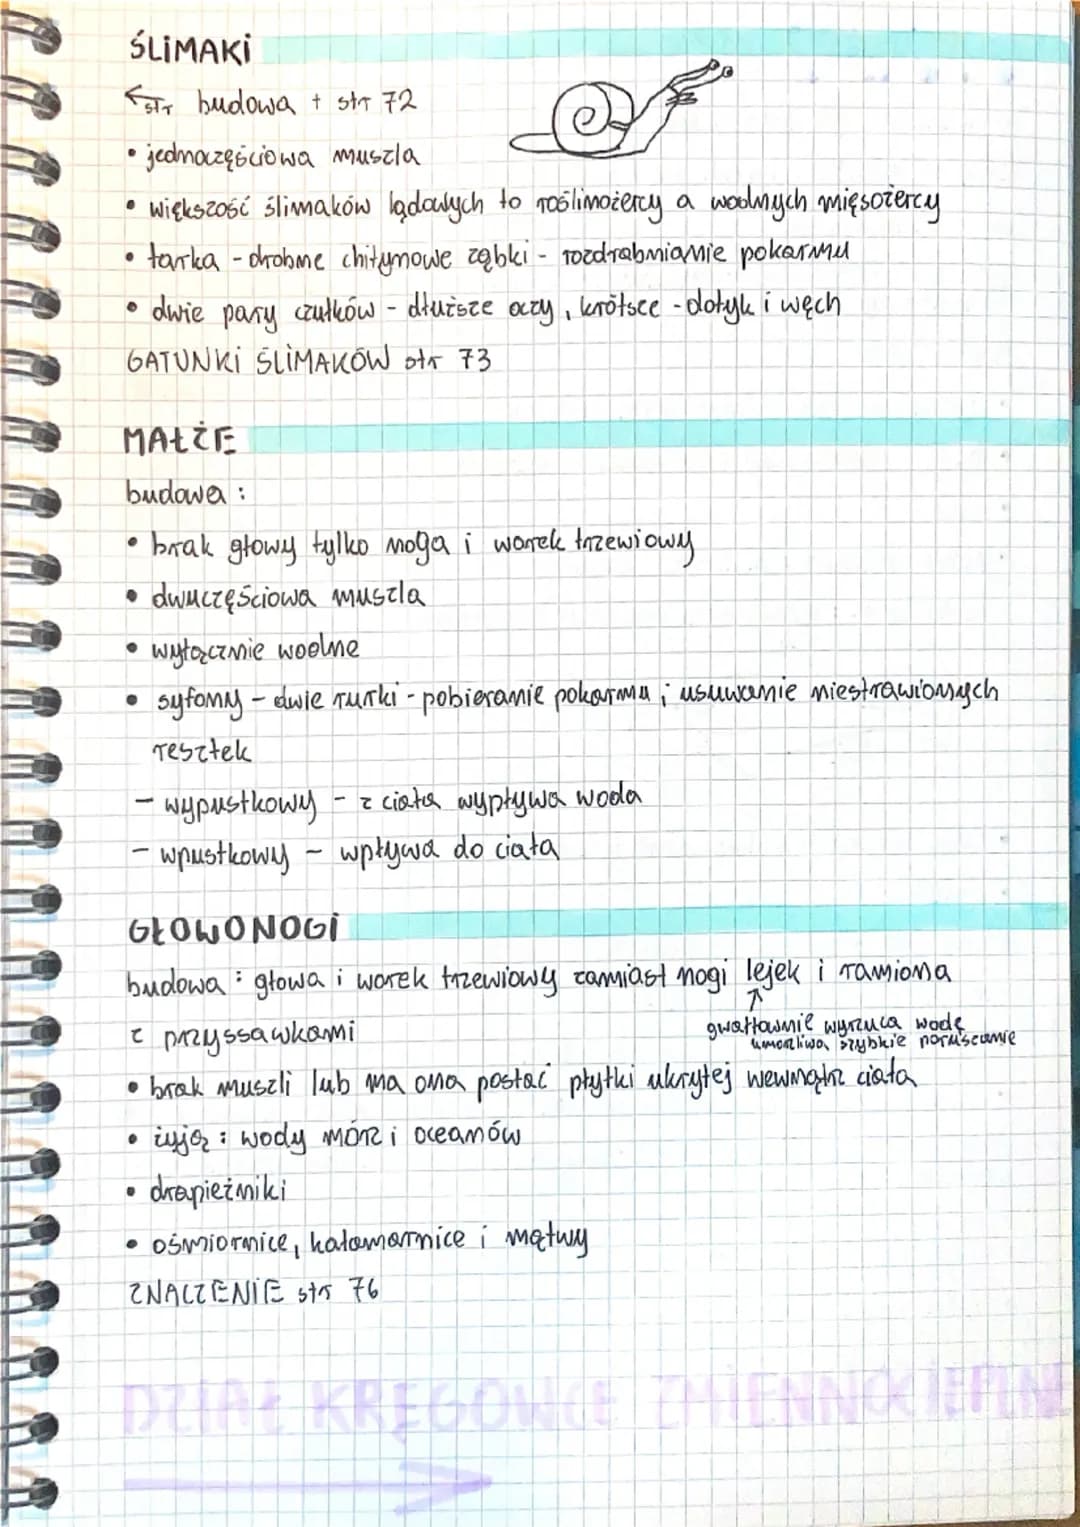 ŚLIMAKI
← str budowa + str 72
• jednoczęściowa muszla
• większość ślimaków lądowych to roślinożercy a wodnych mięsożercy
• tarka - drobne chitynowe ząbki - rozdrabnianie pokarmu
• dwie pary czułków - dłuższe oczy, krótsze - dotyk i węch
GATUNKI ŚLIMAKÓW str 73
MAŁŻE
budowa :
• brak głowy tylko noga i worek trzewiowy
• dwuczęściowa muszla
• wyłącznie wodne
• syfony - dwie rurki - pobieranie pokarmu i usuwanie niestrawionych
resztek
- wypustkowy - z ciała wypływa woda
- wpustkowy - wpływa do ciała
GŁOWONOGI
budowa : głowa i worek trzewiowy zamiast nogi lejek i ramiona
z przyssawkami
↑
gwałtownie wyrzuca wodę
umożliwa szybkie poruszanie
• brak muszli lub ma ona postać płytki ukrytej wewnątrz ciała
• żyją : wody mórz i oceanów
• drapieżniki
• ośmiornice, kałamarnice i mątwy
ZNACZENIE str 76
DZIAŁ KRĘGOWCE ZMIENNOCIEPLNE